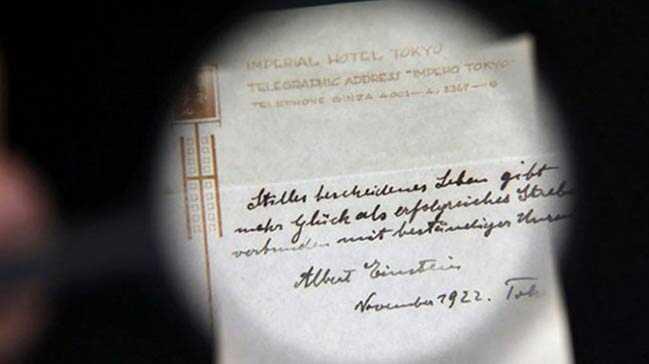 IMPERIAL HOTEL TOKYO
TELEGRAPHIC ADDRESS "IMPEHO TOKYO
TELEPHONE GINZA 4001—4, 3367—9
Stilles bescheidenes Leben gibt
mehr Glück als erfolgreiches Streb
verbunden mit beständiger Unru
Albert Einstein
November 1922. Tok